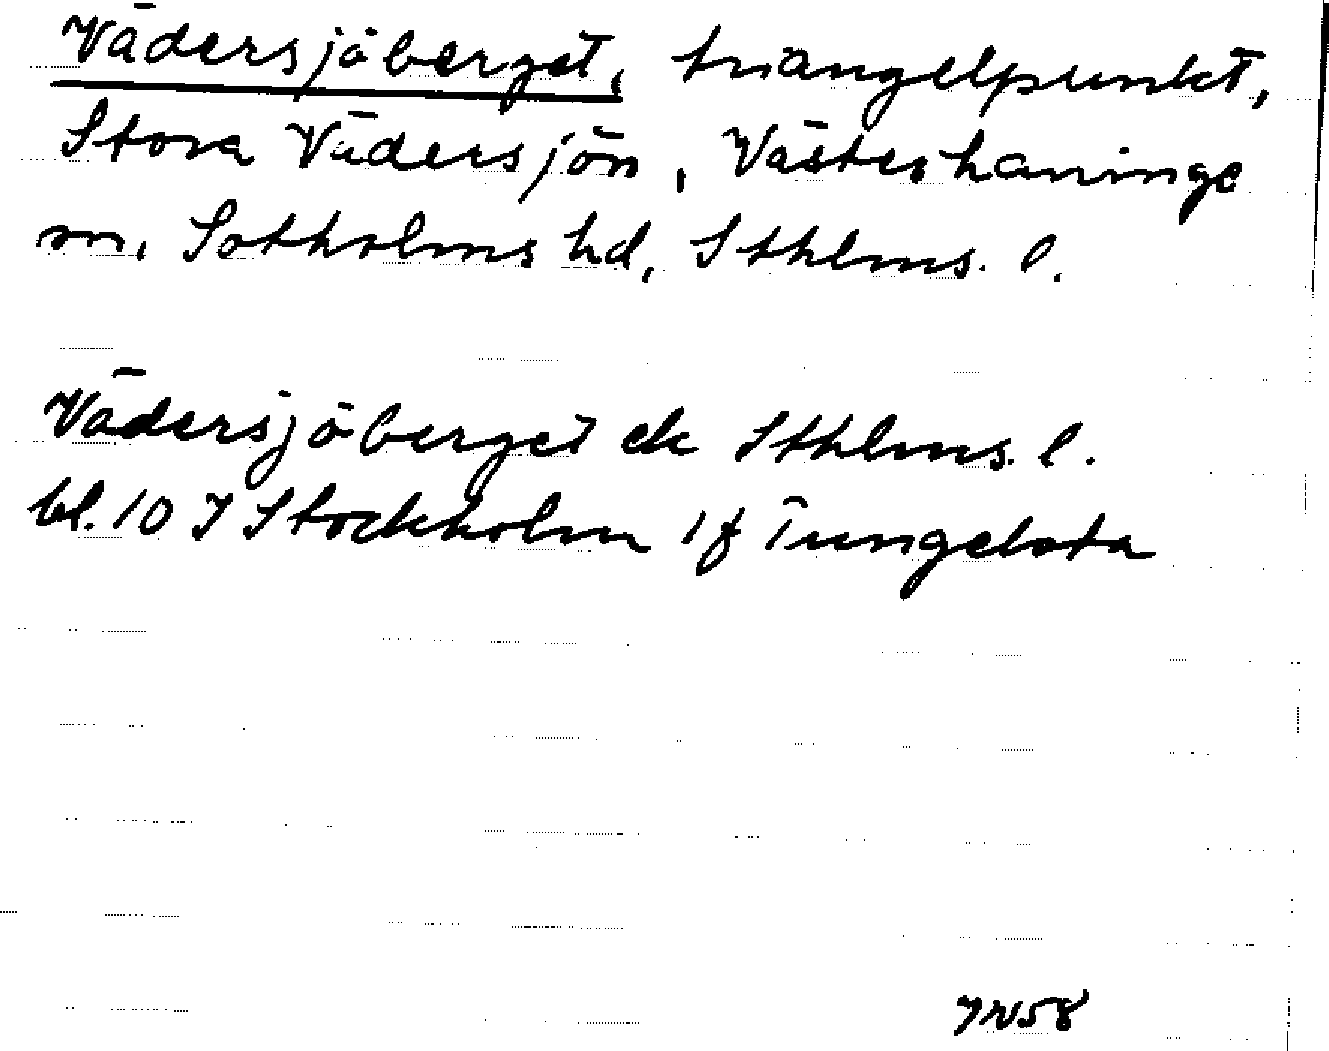 Vädersjöberget, triangelpunkt,
Stora Vädersjön, Västerhaninge
sn, Sotholms hd, Sthlms. l.
Vädersjöberget ek Sthlms. l.
bl. 10 I Stockholm 1f Tungelsta